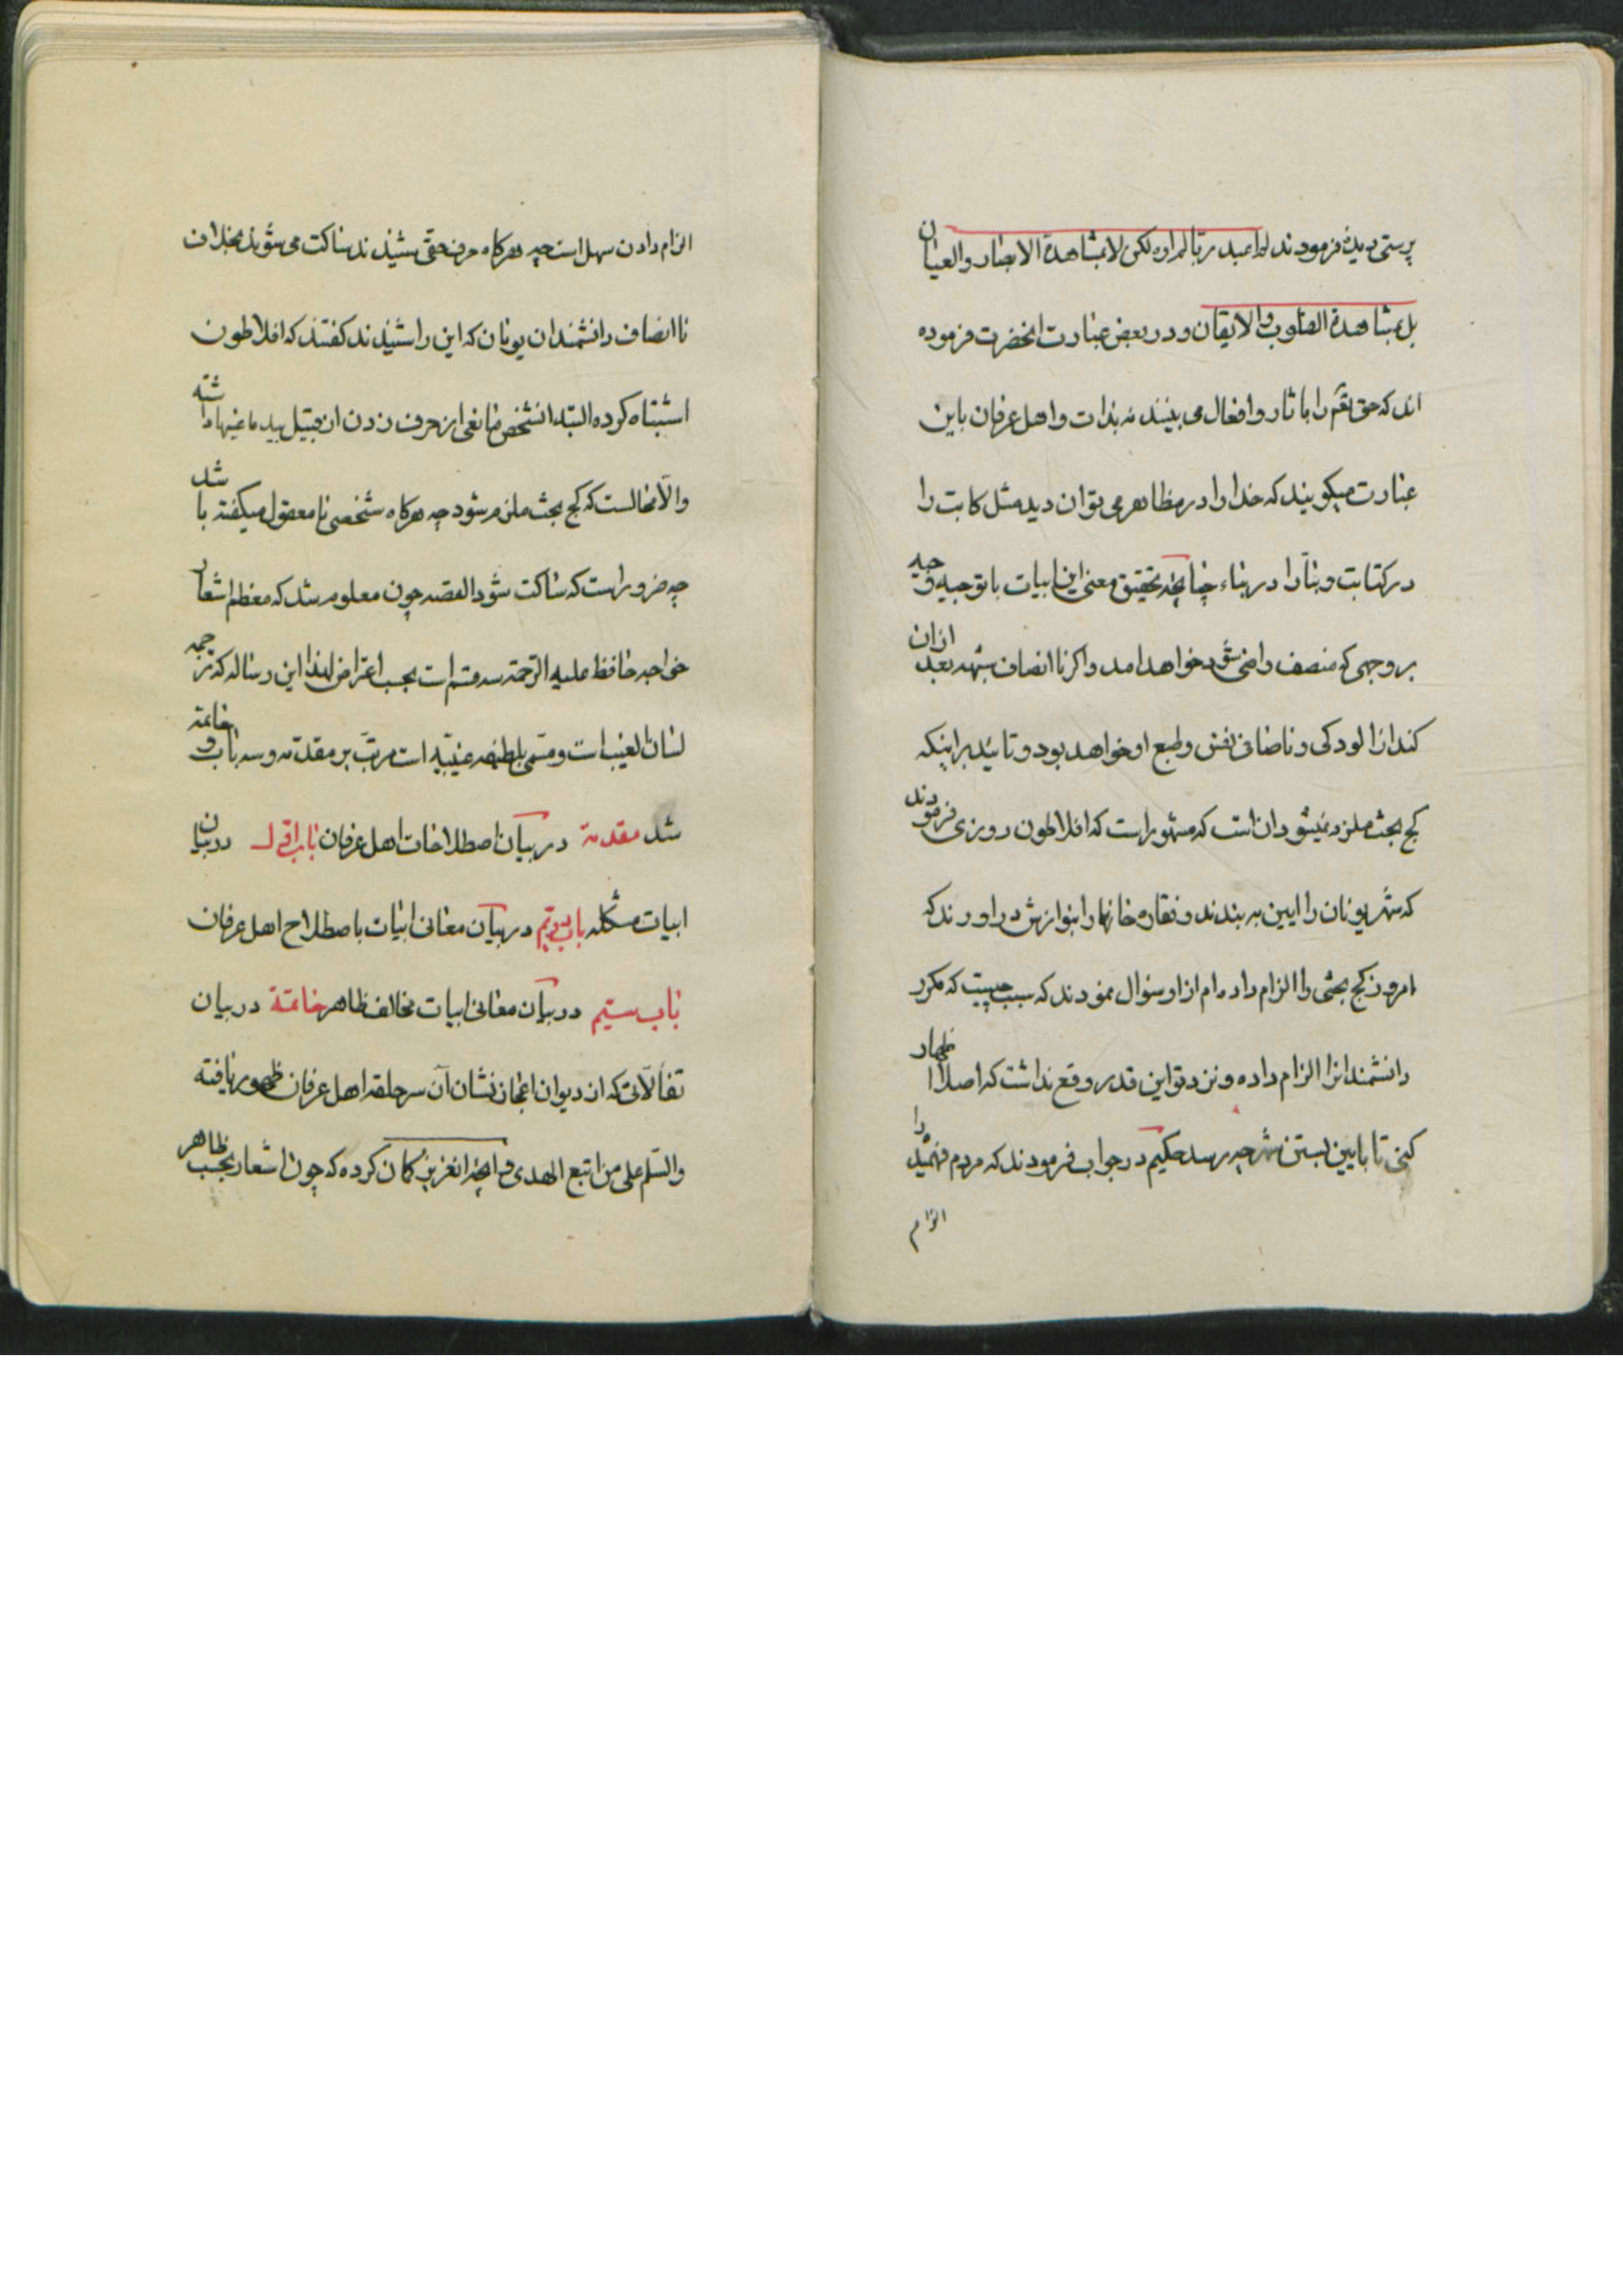 پرستی دیدهٔ فرمودند لم اعبد ربا لم اره لکن لا بمشاهدة الابصار والعیان
بل بمشاهدة القلوب والایقان و در بعض عبارت انحضرت فرموده
اند که حق تعم را باثار و افعال می بینند نه بذات و اهل عرفان باین
عبارت میکویند که خدا را در مظاهر می توان دید مثل کاتب را
در کتابت و بنّا را در بناء چنانچه تحقیق معنی این ابیات با توجیه وجیه
بر وجهی که منصف راضی شود خواهد امد و اکر ناانصاف نفهمد بعد ازان
کند از الودکی و ناصافی نفس و طبع او خواهد بود و تائید بر اینکه
کج بحث ملزم نمیشود ان است که مشهور است که افلاطون روزی فرمودند
که شهر یونان را ایین به بندند و نقاره خانها را بنوازش دراورند که
امروز کج بحثی را الزام داده ام از او سؤال نمودند که سبب چیست که مکرر
دانشمندانرا الزام داده و نزد تو این قدر وقع نداشت که اصلا اظهار
کنی تا بایین بستن شهر چه رسد حکیم در جواب فرمودند که مردم فهمیده را
الزام
الزام دادن سهل است چه هرکاه حرف حقی شنیدند ساکت می شوند بخلاف
ناانصاف دانشمندان یونان که این را شنیدند کفتند که افلاطون
اشتباه کرده البته انشخص مانعی از حرف زدن از قبیل بید ماغیها داشته
والّا محالست که کج بحث ملزم شود چه هرکاه شخصی نامعقول میکفته باشد
چه ضرور است که ساکت شود القصه چون معلوم شد که معظم اشعار
خواجه حافظ علیه الرحمة سه قسم است بحسب اعتراض لهذا این رساله که ترجمه
لسان الغیب است و مسمی بلطیفه غیبیه است مرتّب بر مقدمه و سه باب و خاتمة
شد مقدمة در بیان اصطلاحات اهل عرفان باب اوّل در بیان
ابیات مشکله باب دویّم در بیان معانی ابیات باصطلاح اهل عرفان
باب سیّم در بیان معانی ابیات مخالف ظاهر خاتمة در بیان
تفألاتی که از دیوان اعجاز نشان آن سر حلقه اهل عرفان ظهور یافته
والسّلم علی من اتبع الهدی و انچه انعزیز کمان کرده که چون اشعار بحسب ظاهر